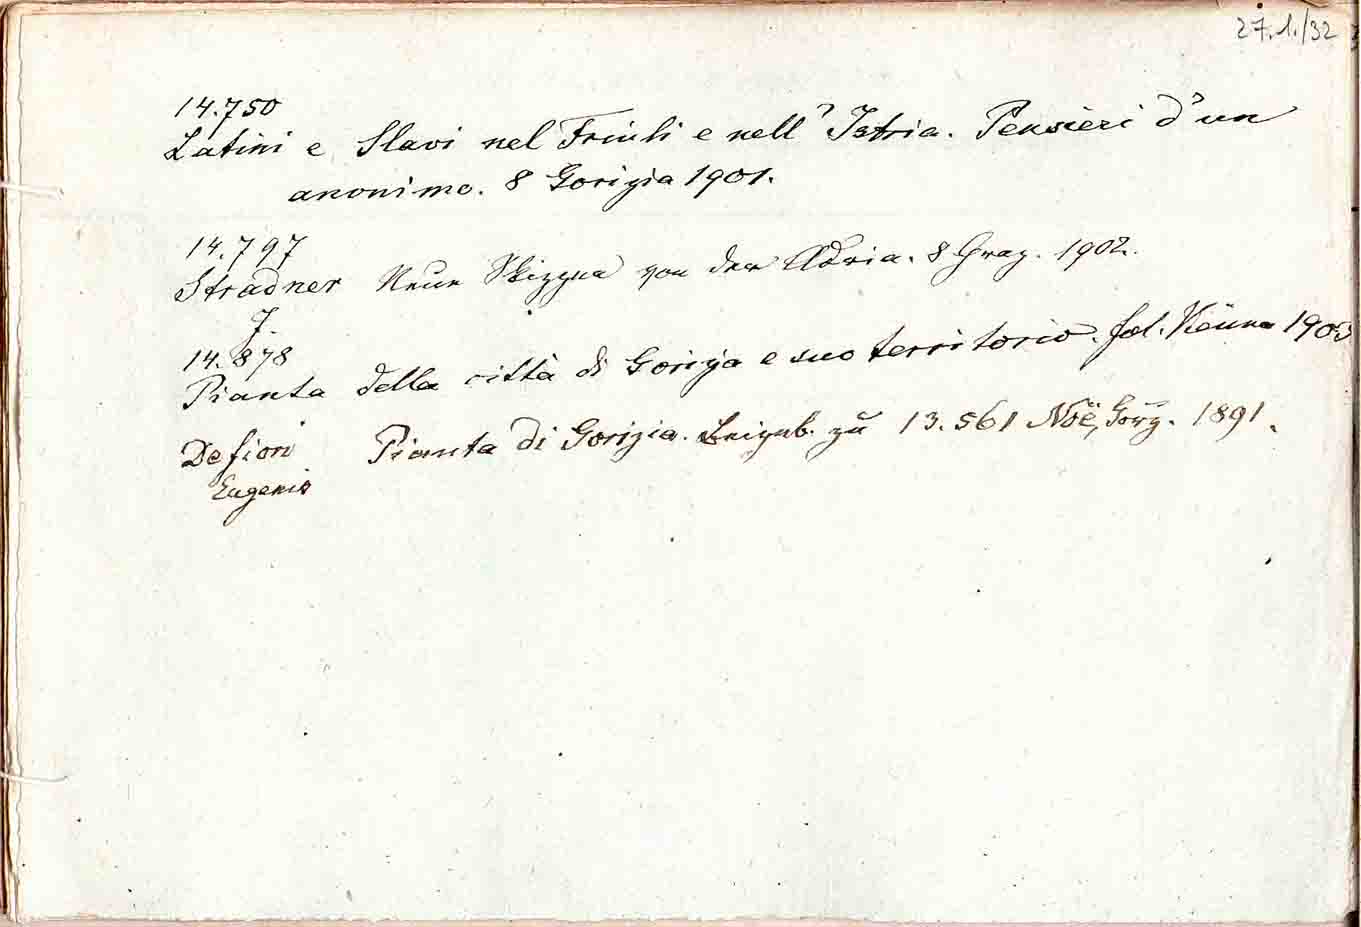 27.1./32
14.750
Latini e Slavi nel Friuli e nell' Istria. Pensieri d'un
anonimo. 8 Gorizia 1901.
14.797
Stradner Neue Skizzen von der Adria. 8 Graz. 1902.
J.
14.878
Pianta della città di Gorizia e suo territorio. fol. Vienna 1903
Defiori Pianta di Gorizia. Beigeb. zu 13.561 Noë, Görz. 1891.
Eugenio